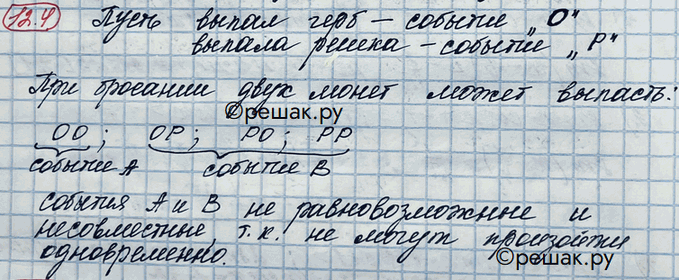 12.4 Пусть выпал герб – событие „О"
выпала решка – событие „Р"
При бросании двух монет может выпасть:
©решак.ру
ОО; ОР; РО; РР
событие А событие В
события А и В не равновозможные и
несовместные, т.к. не могут произойти
одновременно.
©решак.ру